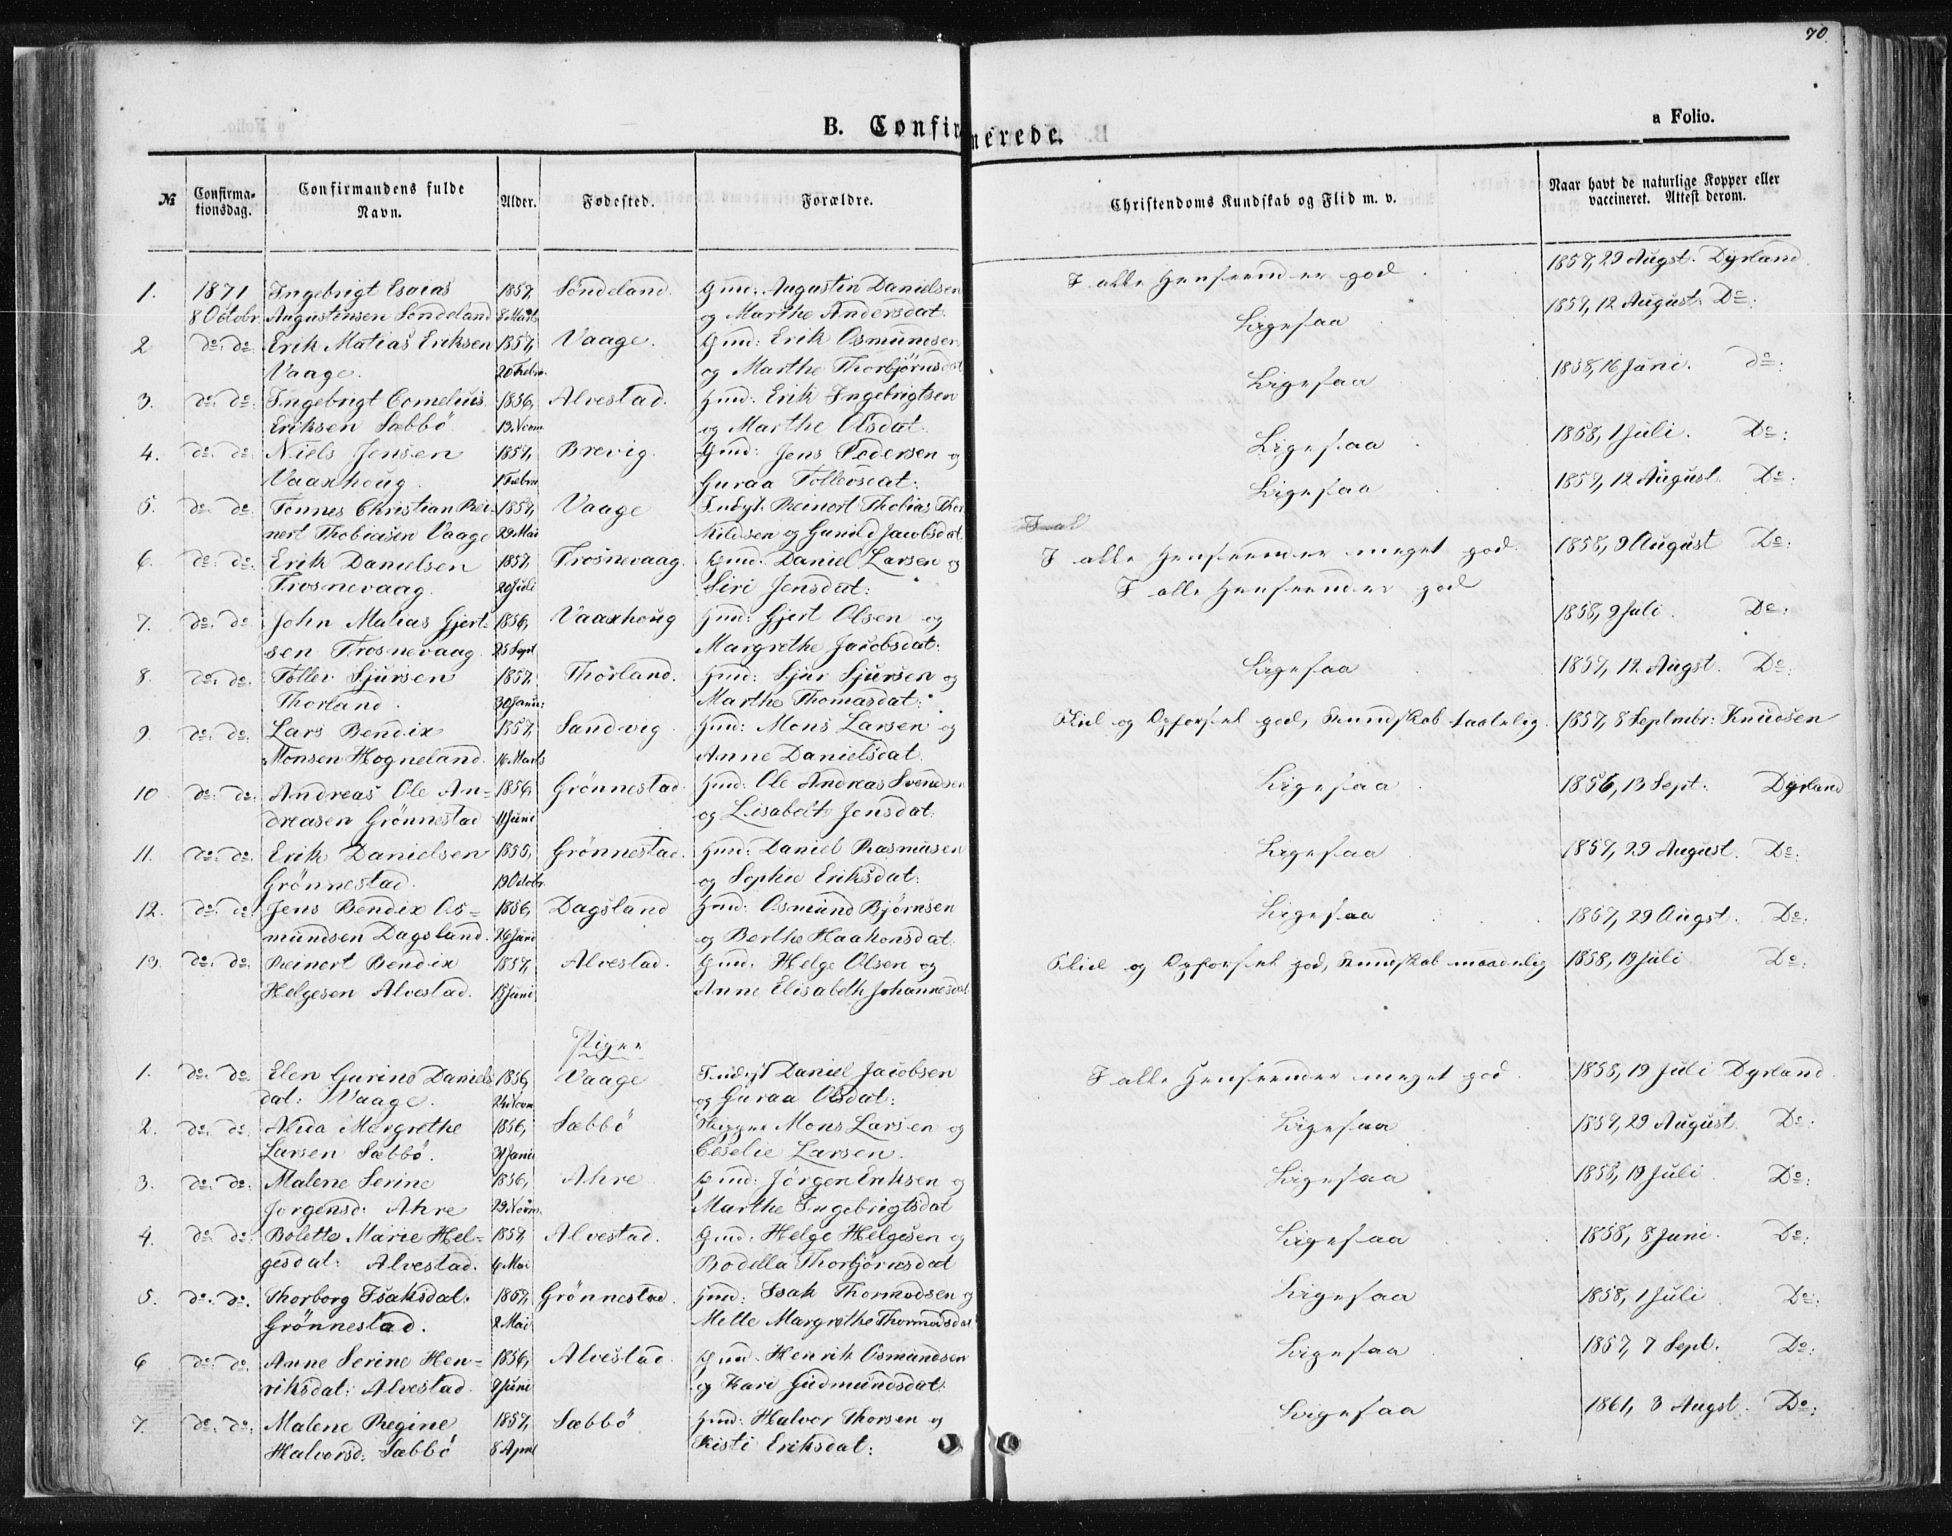 70.
B. Confirmerede.
a Folio.
№
Confirma-
tionsdag.
Confirmandens fulde
Navn.
Alder.
Fødested.
Forældre.
Christendoms Kundskab og Flid m. v.
Naar havt de naturlige Kopper eller
vaccineret. Attest derom.
1. 1871 Ingebrigt Esaias 1857, Söndeland. Gmd: Augustin Danielsen I alle Henseender god 1857, 29 Augst. Dyrland
8 Octobr. Augustensen Söndeland 8 Marts og Marthe Andersdat:
2 do: do: Erik Matias Eriksen 1857, Vaage. Gmd: Erik Osmundsen Ligesaa 1857, 12 August. Do:
Vaage. 20 Febr. og Marthe Thorbjörnsdat
3. do: do: Ingebrigt Cornelius 1856, Alvestad. Gmd: Erik Ingebrigtsen Ligesaa 1858, 16 Juni. do:
Eriksen Sæbbö 19. Novm og Marthe Olsdat.
4. do: do: Niels Jensen 1857, Brevig. Gmd: Jens Pedersen og Ligesaa 1858, 1 Juli. Do:
Vaaxhoug. 1 Febru Guraa Tollevsdat:
5. do: do: Tönnes Christian Rei- 1857, Vaage Indst. Reinert Thobias Thor Ligesaa 1857, 12 August. Do:
nert Thobiasen Vaage 29 Mai kildsen og Gunild Jacobsdat.
6. do: do: Erik Danielsen 1857, Trosnevaag. Gmd. Daniel Larsen og I alle Henseender meget god. 1858, 9 August Do:
Trosnevaag. 20 Juli Siri Jensdat:
7. do: do: John Matias Gjert- 1856, Vaaxhoug Gmd: Gjert Olsen og I alle Henseender god 1858, 9 Juli. Do:
sen Trosnevaag 25 Sept Margrethe Jacobsdat:
8. do: do: Tollev Sjursen 1857, Thorland. Gmd: Sjur Sjursen og Ligesaa 1857, 12 Augst. Do:
Thorland. 30 Janu: Marthe Thomasdat:
9. do: do: Lars Bendix 1857, Sandvig. Gmd: Mons Larsen og Flid og Opførsel god, Kundskab taalelig. 1857, 8 Septmbr: Knudsen
Monsen Hogneland. 16 Marts Anne Danielsdat.
10 do: do: Andreas Ole An- 1856, Grönnestad. Gmd: Ole Andreas Svendsen Ligesaa 1856, 13 Sept. Dyrland
dreasen Grönnestad 11 Juni og Lisabeth Jensdat:
11. do: do: Erik Danielsen 1855, Grönnestad. Gmd: Daniel Rasmusen Ligesaa 1857, 29 August. Do:
Grönnestad. 19 Octobr. og Sophie Eriksdat:
12. do: do: Jens Bendix Os- 1856, Dagsland Gmd: Osmund Björnsen Ligesaa 1857, 29 Augst. Do:
mundsen Dagsland. 26 Juni og Berthe Haakonsdat.
13. do: do: Reinert Bendix 1857, Alvestad. Gmd: Helge Olsen og Flid og Opførsel god, Kundskab maadelig 1858, 19 Juli Do:
Helgesen Alvestad. 15 Juni Anne Elisabeth Johannesdat
Piger
1. do: do: Elen Gurine Daniels 1856, Vaage Indst Daniel Jacobsen I alle Henseender meget god. 1858, 19 Juli Dyrland
dat: Vaage. og Guraa Olsdat:
2. do: do: Anna Margrethe 1856, Sæbbö Skipper Mons Larsen og Ligesaa 1857, 29 August Do:
Larsen Sæbbö. Larsen.
3. do: do: Malene Serine 1856, Ahre Gmd: Jörgen Eriksen og Ligesaa 1858, 19 Juli. Do:
Jorgensd: Ahre 29 Novm. Marthe Ingebrigtsdat
4. do: do: Bolette Marie Hel- 1857, Alvestad. Gmd: Helge Helgesen og Ligesaa 1858, 8 Juni. Do:
gesdat: Alvestad. 6 Mai Bodella Thorbjörnsdat
5. do: do: Thorborg Isaksdat. 1857, Grönnestad. Gmd: Isak Thormodsen og Ligesaa 1858, 1 Juli Do:
Grönnestad. 2 Mai Mette Margrethe Thormodsdat
6 do: do: Anne Serine Hen- 1856, Alvestad. Gmd. Henrik Osmundsen Ligesaa 1857, 7 Sept. Do:
riksdat: Alvestad. 9 Juni og Kari Gudmundsdat:
7. do: do: Malene Regine 1857, Sæbbö Gmd: Halvor Thorsen og Ligesaa 1861, 3 Augst. Do:
Halvorsd: Sæbbö 8 April Kisti Eriksdat: